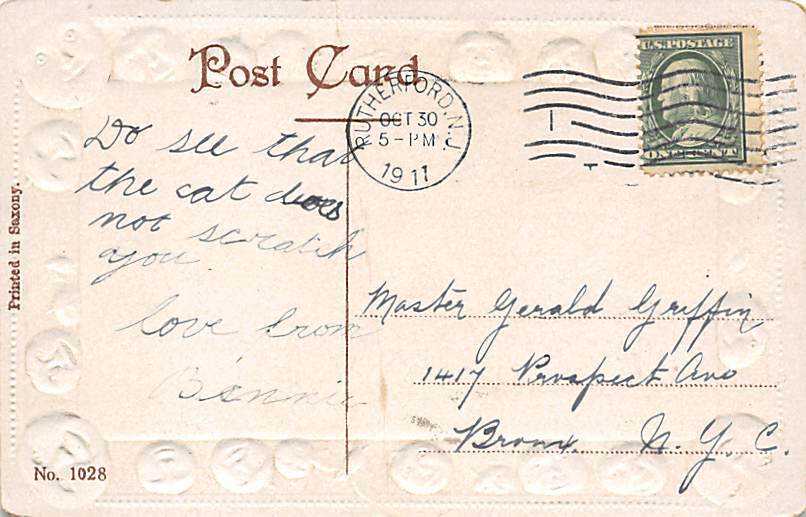 Post Card
U.S. POSTAGE
ONE CENT
RUTHERFORD, N.J.
OCT 30
5-PM
1911
Do see that
the cat does
not scratch
you
love from
Bennie
Master Gerald Griffin
1417 Prospect Ave
Bronx, N. Y. C.
Printed in Saxony.
No. 1028